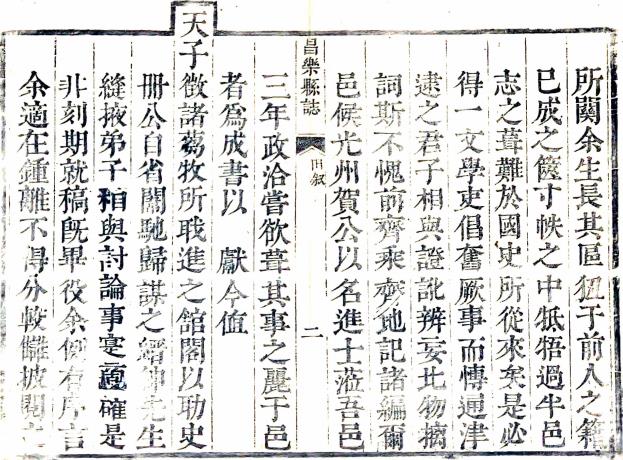 所闕余生長其區狃于前人之籍
已成之篋寸帙之中牴牾過半邑
志之葺難於國史所從來矣是必
得一文學吏倡奮厥事而博通津
逮之君子相與證訛辨妄比物摛
詞斯不愧前齊乘齊地記諸編爾
邑候光州賀公以名進士蒞吾邑
昌樂縣誌 旧叙 二
三年政洽嘗欲葺其事之麗于邑
者爲成書以 獻今値
天子徵諸蒭牧所職進之館閣以助史
册公自省闈馳歸謀之縉紳先生
縫掖弟子相與討論事寔確是
非刻期就稿旣畢役余例有序言
余適在鍾離不得分較讎披閱之